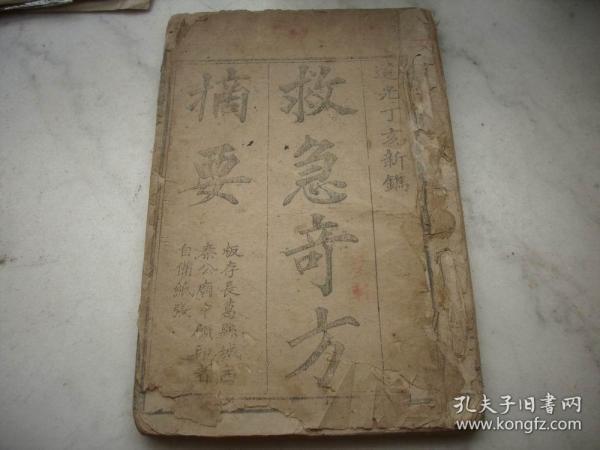 道光丁亥新鐫
救急奇方
摘要
板存長葛縣城西
秦公廟中願印者
自備紙張
孔夫子旧書网
www.kongfz.com